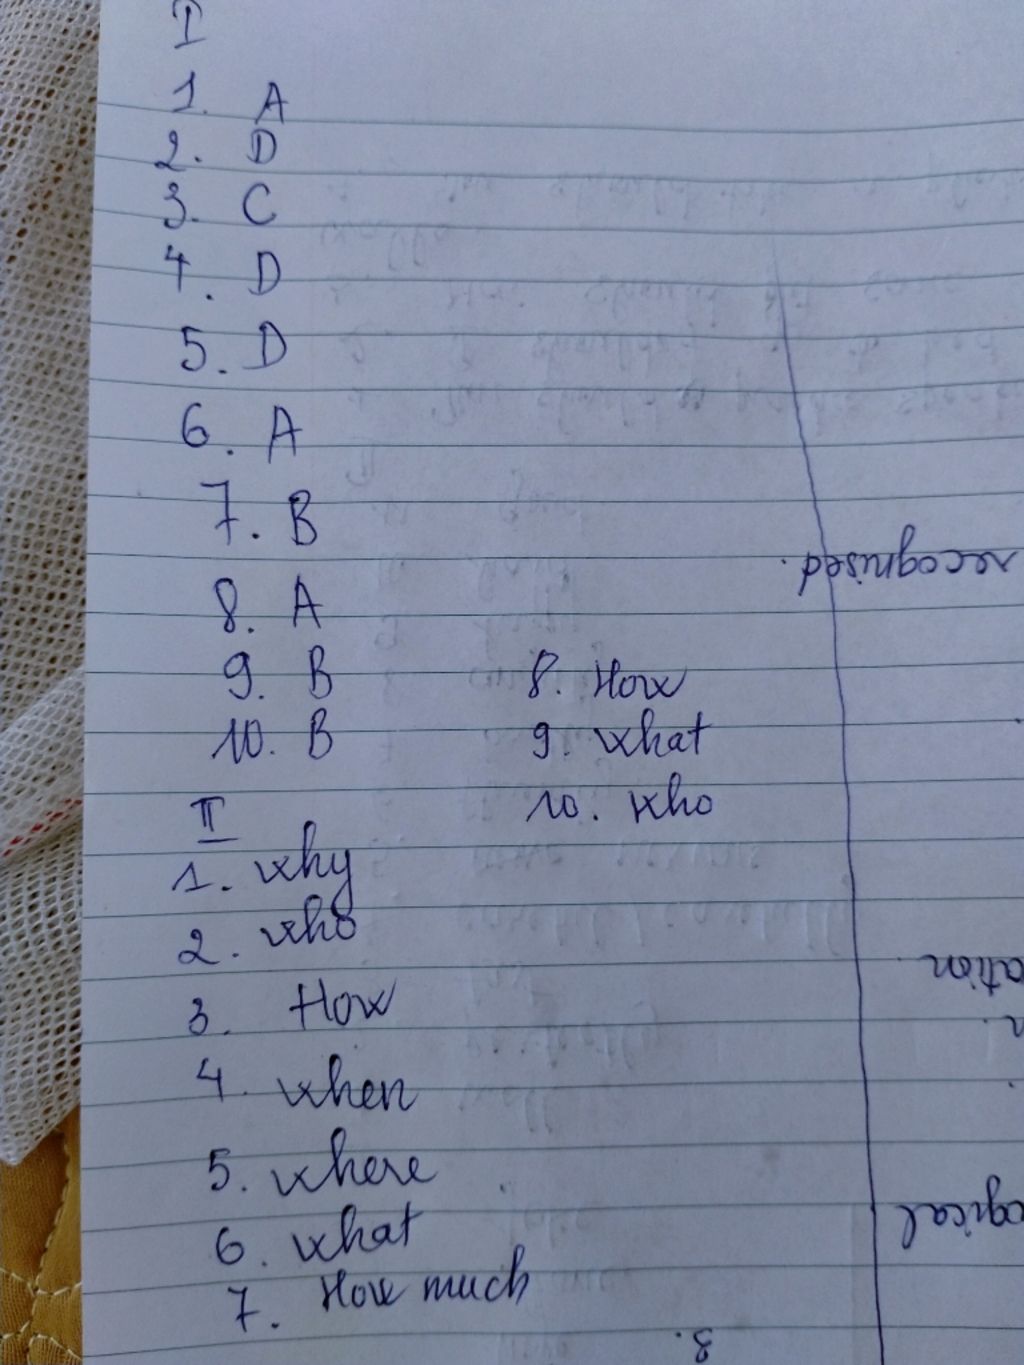 I
1. A
2. D
3. C
4. D
5. D
6. A
7. B
8. A
9. B
10. B
II
1. why
2. who
3. How
4. when
5. where
6. what
7. How much
8. How
9. what
10. who
recognised.
ation
n.
ogical
8.